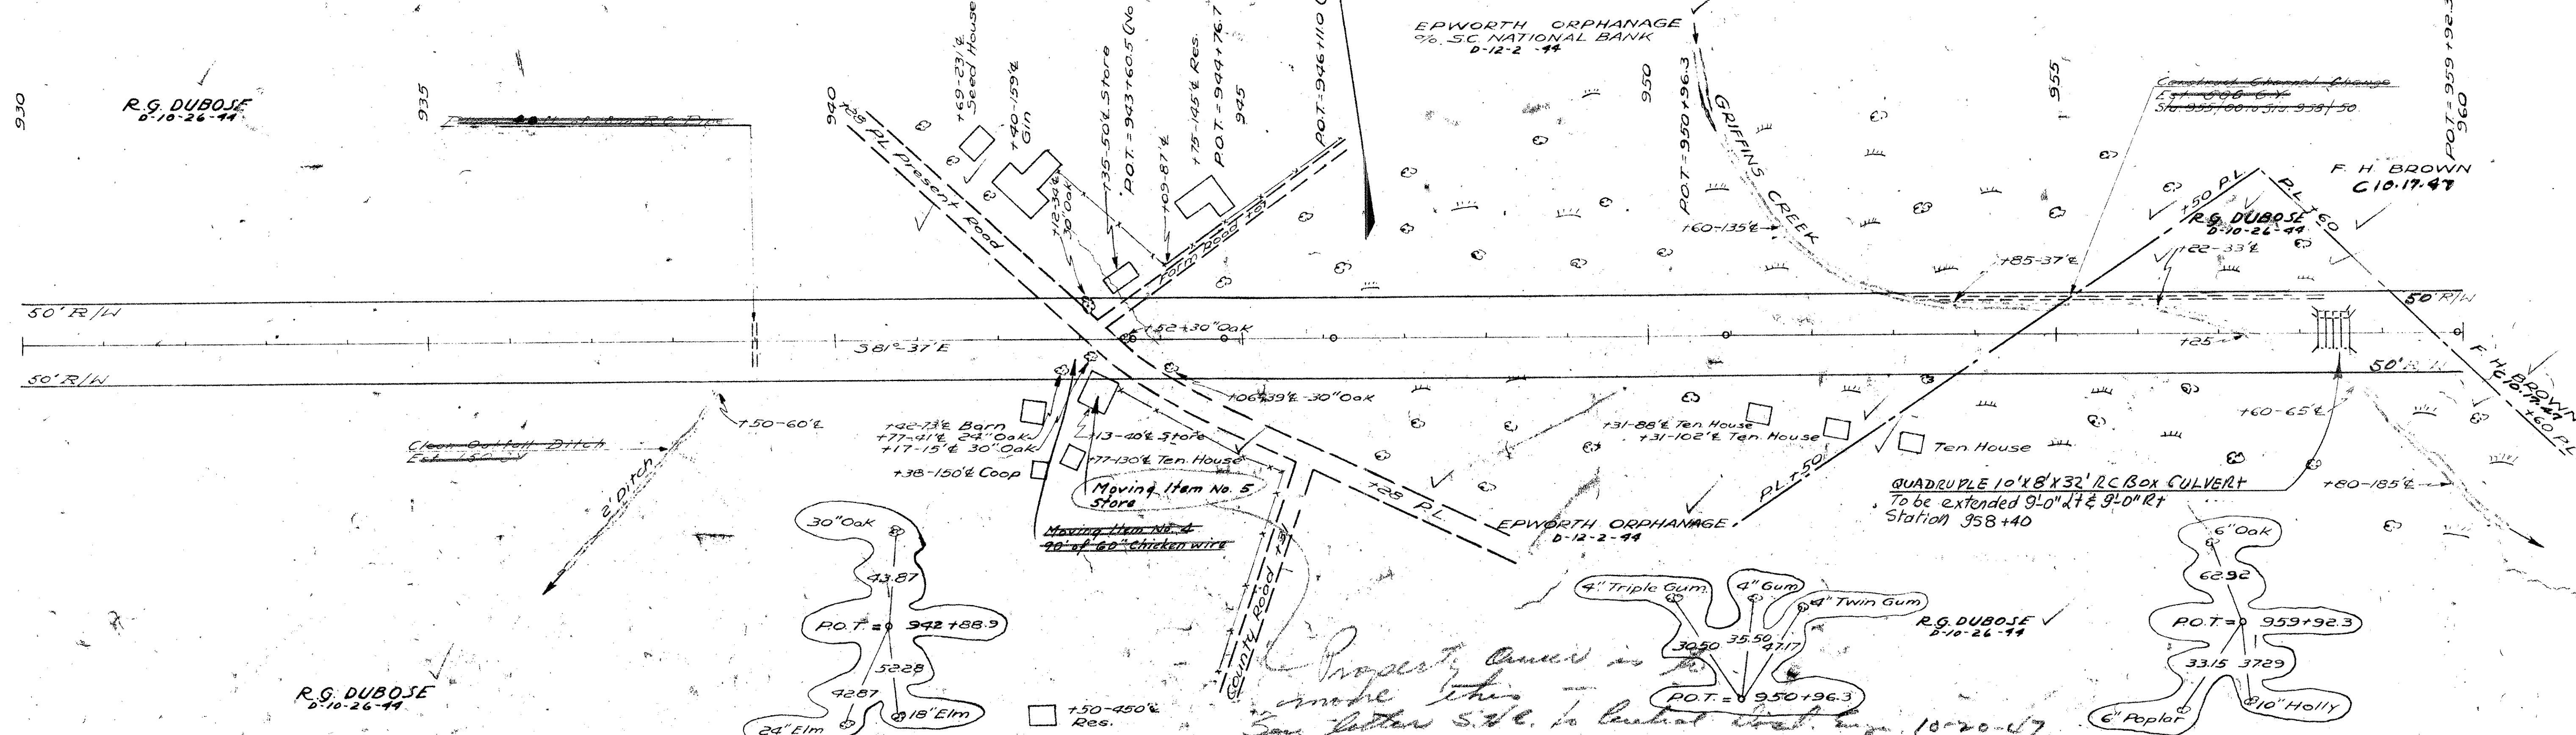 930
R.G. DUBOSE
D-10-26-44
935
940
+28 P.L.
Present Road
+69-231'℄
Seed House
+40-159'℄
Gin
+12-34'℄
30"Oak
+35-50'℄ Store
P.O.T. = 943+60.5 (No
+09-87'℄
+75-145'℄ Res.
P.O.T. = 944+76.7
945
P.O.T. = 946+11.0
Farm Road
EPWORTH ORPHANAGE
% S.C. NATIONAL BANK
D-12-2-44
950
P.O.T. = 950+96.3
GRIFFINS CREEK
+60-135'℄
955
Construct Channel Change
Est. 606 C.Y.
Sta. 955+00 to Sta. 958+50
P.O.T. = 959+92.3
960
F. H. BROWN
C 10.17.47
+50 P.L.
P.L. +60
R.G. DUBOSE
D-10-26-44
+22-33'℄
+85-37'℄
50' R/W
50' R/W
S 81°-37'E
+52 30"Oak
+25
50' R/W
50' R/W
F. H. BROWN
C 10.17.47
+60 P.L.
+50-60'℄
Clean Outfall Ditch
2' Ditch
+42-73'℄ Barn
+77-41'℄ 24"Oak
+17-15'℄ 30"Oak
+38-150'℄ Coop
+13-40'℄ Store
+77-130'℄ Ten. House
+06-39'℄-30"Oak
Moving Item No. 5
Store
Moving Item No. 4
90' of 60" Chicken wire
+28 P.L.
+31-88'℄ Ten. House
+31-102'℄ Ten. House
Ten. House
P.L. +50
+60-65'℄
+80-185'℄
QUADRUPLE 10'X8'X32' RC BOX CULVERT
To be extended 9'-0" Lt & 9'-0" Rt
Station 958+40
EPWORTH ORPHANAGE
D-12-2-44
County Road
30"Oak
43.87
P.O.T. = 942+88.9
52.28
42.87
24"Elm
18"Elm
R.G. DUBOSE
D-10-26-44
+50-450'℄
Res.
Property owner is to
move this
See letter
10-20-47
4" Triple Gum
4" Gum
4" Twin Gum
30.50
35.50
47.17
P.O.T. = 950+96.3
R.G. DUBOSE
D-10-26-44
6"Oak
62.92
P.O.T. = 959+92.3
33.15
37.29
6"Poplar
10"Holly